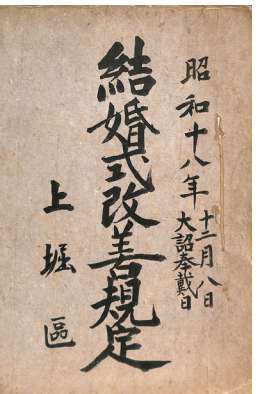 昭和十八年十二月八日
大詔奉戴日
結婚式改善規定
上堀區